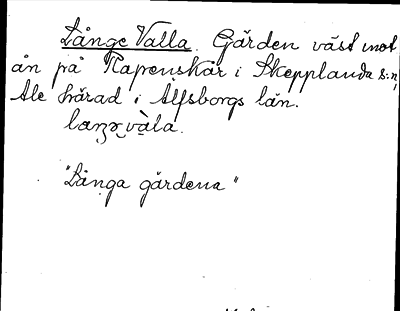 Långe Valla. Gården väst mot
ån på Rapenskår i Skepplanda s:n,
Ale härad i Älfsborgs län.
"Långa gärdena"